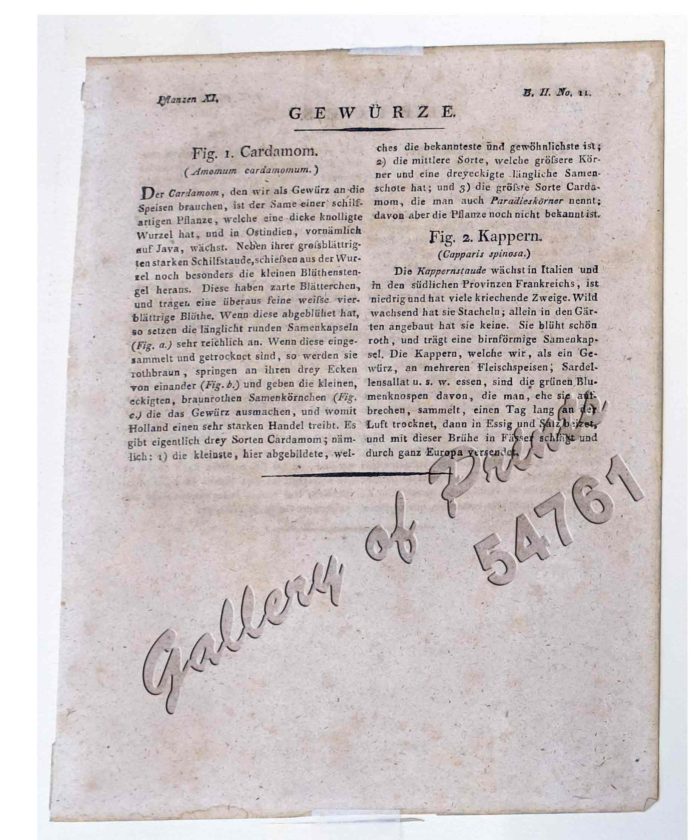 Pflanzen XI.
B. II. No. 11.
GEWÜRZE.
Fig. 1. Cardamom.
(Amomum cardamomum.)
Der Cardamom, den wir als Gewürz an die
Speisen brauchen, ist der Same einer schilf-
artigen Pflanze, welche eine dicke knolligte
Wurzel hat, und in Ostindien, vornämlich
auf Java, wächst. Neben ihrer grofsblättrig-
ten starken Schilfstaude, schiefsen aus der Wur-
zel noch besonders die kleinen Blüthensten-
gel heraus. Diese haben zarte Blätterchen,
und tragen eine überaus feine weifse vier-
blättrige Blüthe. Wenn diese abgeblühet hat,
so setzen die länglicht runden Samenkapseln
(Fig. a.) sehr reichlich an. Wenn diese einge-
sammelt und getrocknet sind, so werden sie
rothbraun, springen an ihren drey Ecken
von einander (Fig. b.) und geben die kleinen,
eckigten, braunrothen Samenkörnchen (Fig.
c.) die das Gewürz ausmachen, und womit
Holland einen sehr starken Handel treibt. Es
gibt eigentlich drey Sorten Cardamom; näm-
lich: 1) die kleinste, hier abgebildete, wel-
ches die bekannteste und gewöhnlichste ist;
2) die mittlere Sorte, welche gröfsere Kör-
ner und eine dreyeckigte längliche Samen-
schote hat; und 3) die gröfste Sorte Carda-
mom, die man auch Paradieskörner nennt;
davon aber die Pflanze noch nicht bekannt ist.
Fig. 2. Kappern.
(Capparis spinosa.)
Die Kappernstaude wächst in Italien und
in den südlichen Provinzen Frankreichs, ist
niedrig und hat viele kriechende Zweige. Wild
wachsend hat sie Stacheln; allein in den Gär-
ten angebaut hat sie keine. Sie blüht schön
roth, und trägt eine birnförmige Samenkap-
sel. Die Kappern, welche wir, als ein Ge-
würz, an mehreren Fleischspeisen; Sardel-
lensallat u. s. w. essen, sind die grünen Blu-
menknospen davon, die man, ehe sie auf-
brechen, sammelt, einen Tag lang an der
Luft trocknet, dann in Essig und Salz beizet,
und mit dieser Brühe in Fässer schlägt und
durch ganz Europa versendet.
Gallery of Prints
54761